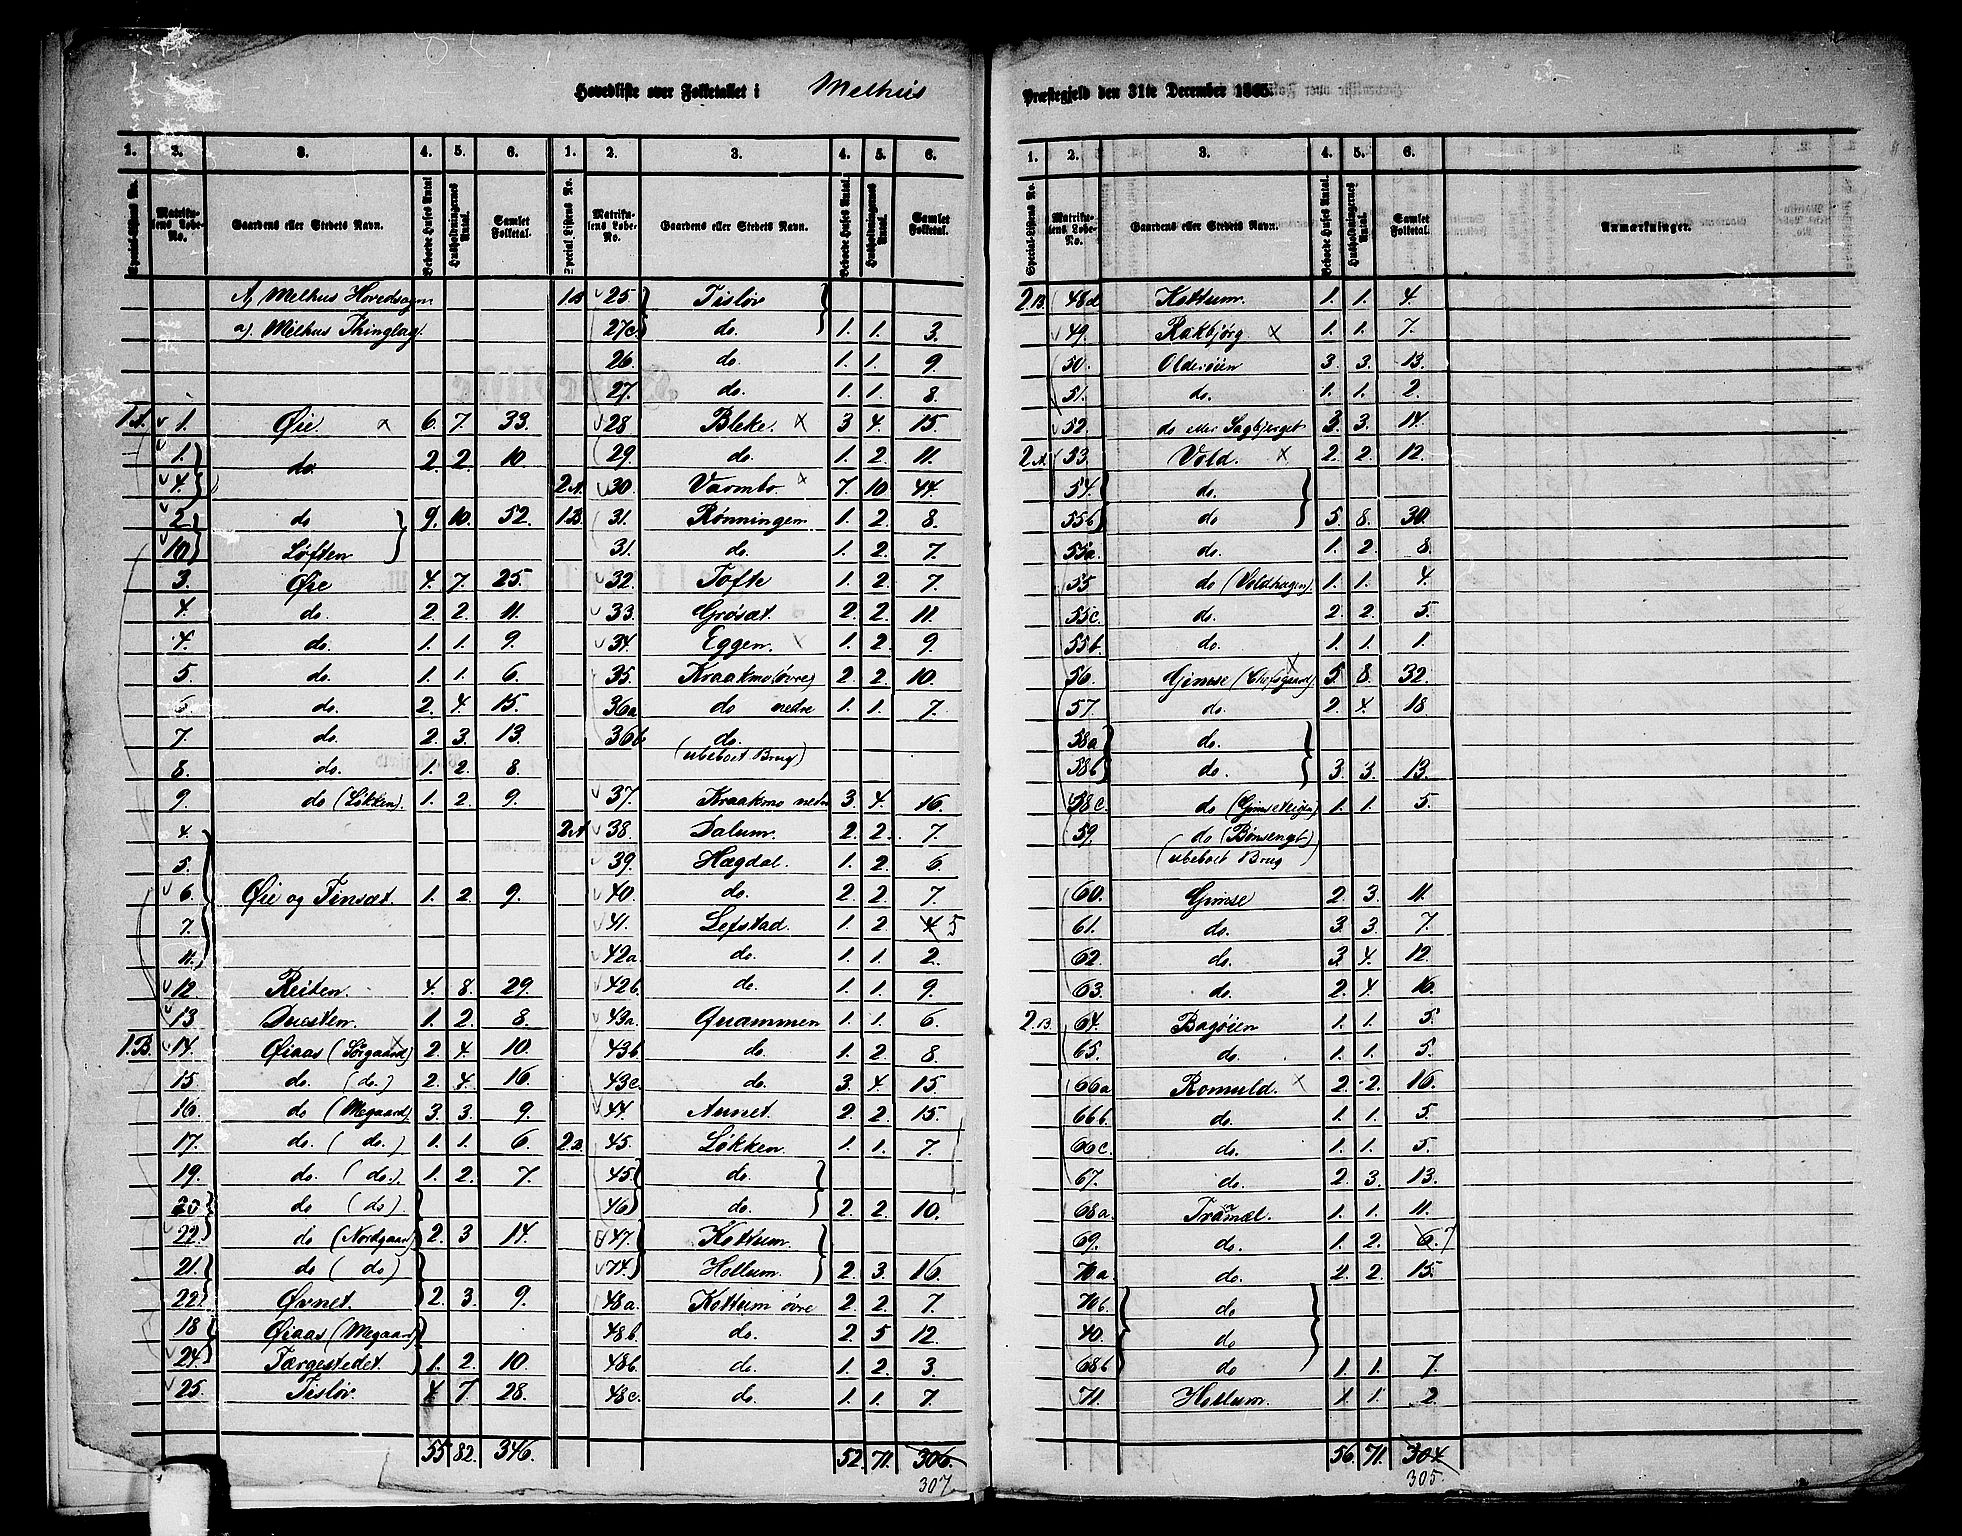 Hovedliste over Folketallet i Melhus Præstegjeld den 31te December 1865.
1. 2. 3. 4. 5. 6. 1. 2. 3. 4. 5. 6.
Special-Listens No. Matrikulens Løbe-No. Gaardens eller Stedets Navn. Beboede Huses Antal Husholdningernes Antal. Samlet Folketal. Special-Listens No. Matrikulens Løbe-No. Gaardens eller Stedets Navn. Beboede Huses Antal. Husholdningernes Antal. Samlet Folketal.
A) Melhus Hovedsogn
a). Melhus Thinglag.
1A. 1. Øie. x 6. 7. 33.
1. } do. 2. 2. 10
4. }
2. } do } 9. 10. 52.
10 } Løften }
3. Øie 4. 7. 25.
4. do. 2. 2. 11.
4. do. 1. 1. 9.
5. do. 1. 1. 6.
6. do. 2. 4. 15.
7. do. 2. 3. 13.
8. do. 1. 2. 8.
9. do (Løkken). 1. 2. 9.
4. }
5. }
6. } Øie og Finsæt. 1. 2. 9.
7. }
11. }
12. Reiten. 4. 8. 29.
13 Duesten. 1. 2. 8.
1.B. 14. Øiaas (Sørgaard) x 2. 4. 10.
15. do. (do.) 2. 4. 16.
16. do (Megaard) 3. 3. 9.
17. do. (do.) 1. 1. 6.
19. do (do.). 1. 2. 7.
23 } do (do). }
22. } do (Nordgaard) 2. 3 14.
21. } do (do) }
22. } Øvnet. } 2. 3. 9.
18 } Øiaas (Megaard) }
24. } Færgestedet. } 1. 2. 10.
25. Tisløv. 4 7. 28.
55 82. 346.
1B 25 } Tisløv }
27c. } do. } 1. 1. 3.
26. do. 1. 1. 9
27. do. 1. 1. 8.
28 Bleke. x 3 4. 15.
29. do. 1. 2. 11.
2A. 30. Varmbo x 7. 10 44.
1.B. 31. Rønningen 1. 2. 8.
31. do. 1. 2. 7.
32. Tofte 1. 2. 7.
33. Grøsæt. 2. 2. 11.
34. Eggen. x 1. 2. 9
35. Kraakmo (øvre) 2. 2. 10.
36a do nedre 1. 1. 7.
36b do.
(ubeboet Brug)
37. Kraakmo nedre 3. 4. 16.
2A 38. Dalum. 2. 2. 7.
39. Hægdal. 1. 2. 6
40. do. 2. 2. 7.
41. Lefstad. 1. 2 4 5
42a. do. 1. 1. 2.
42b. do. 1. 1. 9.
43a. Quammen 1. 1. 6.
43b do. 1. 2 8.
43c. do. 3. 4. 15.
44. Aunet. 2. 2. 15.
2.B. 45. Løkken. 1. 1. 7.
45. } do. }
46 } do. } 2. 2. 10.
47. } Kottum. }
74. } Hollum. } 2. 3. 16.
48a. Kottum øvre 2. 2. 7.
48b. do. 2. 5 12.
48b. do. 1. 2 3.
48c. do. 1. 1. 7.
52. 71. 306.
307.
1. 2. 3. 4. 5. 6.
Special-Listens No. Matrikulens Løbe-No. Gaardens eller Stedets Navn. Beboede Huses Antal. Husholdningernes Antal. Samlet Folketal. Anmærkninger.
2.B. 48d Kottum. 1. 1. 4.
49. Rakbjørg. x 1. 1. 7.
50. Olderøien 3. 3. 13.
51. do. 1. 1. 2.
52. do eller Sagbjerget 3. 3. 14.
2.A. 53. Vold. x 2. 2. 12.
54. } do. }
55b } do } 5. 8. 30.
55a. do. 1. 2. 8.
55 do (Voldhagen). 1. 1. 4.
55c. do. 2. 2. 5.
55b. do. 1. 1. 1.
56. Gimse (Chefsgaard) x 5 8. 32.
57. do. 2. 4. 18.
58a } do. }
58b } do. } 3. 3. 13.
58c. do (Gimseteigen) 1. 1. 5.
59. do (Bønsengt)
(ubeboet Brug)
60. Gimse 2. 3. 11.
61. do. 3. 3. 7.
62 do. 3. 4. 12.
63. do. 2. 4. 16.
2.B. 64. Bagøien 1. 1. 5.
65. do. 1. 1. 5.
66a Romuld. x 2. 2. 16.
66b. do. 1. 1. 5.
66c. do. 1. 1. 5.
67. do. 2. 3. 13.
68a. Tranmæl. 1. 1. 11.
69. do. 1. 2. 6. 7
70a. do. 2. 2. 15.
70b. } do }
40. } do }
68b } do } 1. 1. 7.
71. Hollum. 1. 1. 2.
56. 71. 304
305.